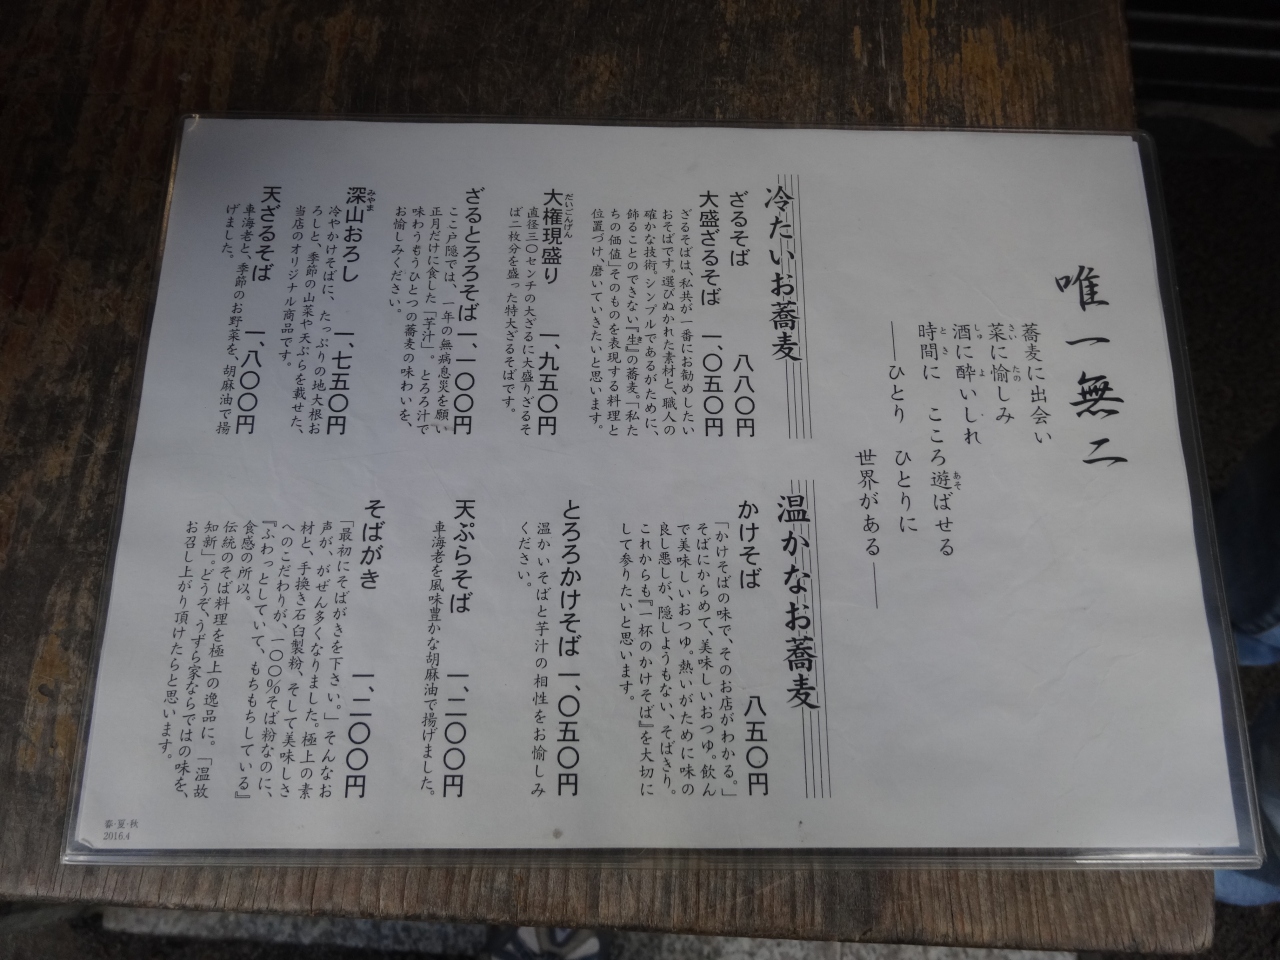 唯一無二
蕎麦に出会い
菜に愉しみ
酒に酔いしれ
時間に　こころ遊ばせる
――ひとり　ひとりに
世界がある――
冷たいお蕎麦
ざるそば　八八〇円
大盛ざるそば　一、〇五〇円
ざるそばは、私共が一番にお勧めしたい
おそばです。選びぬかれた素材と、職人の
確かな技術。シンプルであるがために、
飾ることのできない『生』の蕎麦。「私た
ちの価値」そのものを表現する料理と
位置づけ、磨いていきたいと思います。
大権現盛り　一、九五〇円
直径三〇センチの大ざるに大盛りざるそ
ば二枚分を盛った特大ざるそばです。
ざるとろろそば　一、一〇〇円
ここ戸隠では、一年の無病息災を願い
正月だけに食した「芋汁」。とろろ汁で
味わうもうひとつの蕎麦の味わいを、
お愉しみください。
深山おろし　一、七五〇円
冷やかけそばに、たっぷりの地大根お
ろしと、季節の山菜や天ぷらを載せた、
当店のオリジナル商品です。
天ざるそば　一、八〇〇円
車海老と、季節のお野菜を、胡麻油で揚
げました。
温かなお蕎麦
かけそば　八五〇円
「かけそばの味で、そのお店がわかる。」
そばにからめて、美味しいおつゆ。飲ん
で美味しいおつゆ。熱いがために味の
良し悪しが、隠しようもない、そばきり。
これからも『一杯のかけそば』を大切に
して参りたいと思います。
とろろかけそば　一、〇五〇円
温かいそばと芋汁の相性をお愉しみ
ください。
天ぷらそば　一、二〇〇円
車海老を風味豊かな胡麻油で揚げました。
そばがき　一、二〇〇円
「最初にそばがきを下さい。」そんなお
声が、がぜん多くなりました。極上の素
材と、手挽き石臼製粉、そして美味しさ
へのこだわりが、一〇〇%そば粉なのに、
『ふわっとしていて、もちもちしている』
食感の所以。
伝統のそば料理を極上の逸品に。「温故
知新」。どうぞ、うずら家ならではの味を、
お召し上がり頂けたらと思います。
春・夏・秋
2016.4